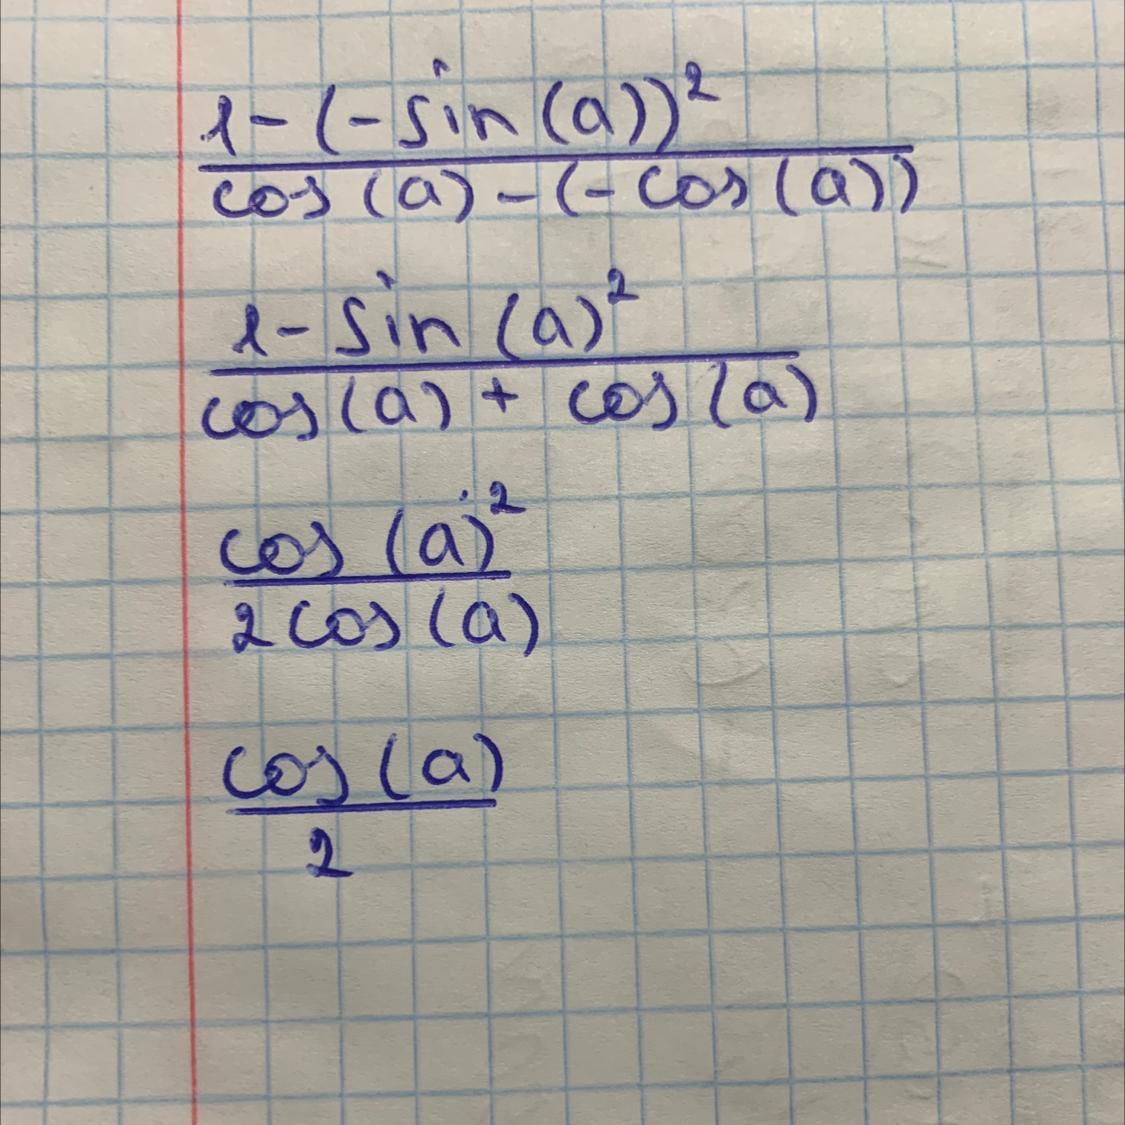 1-(-sin(a))²
cos(a)-(-cos(a))
1-sin(a)²
cos(a)+cos(a)
cos(a)²
2cos(a)
cos(a)
2